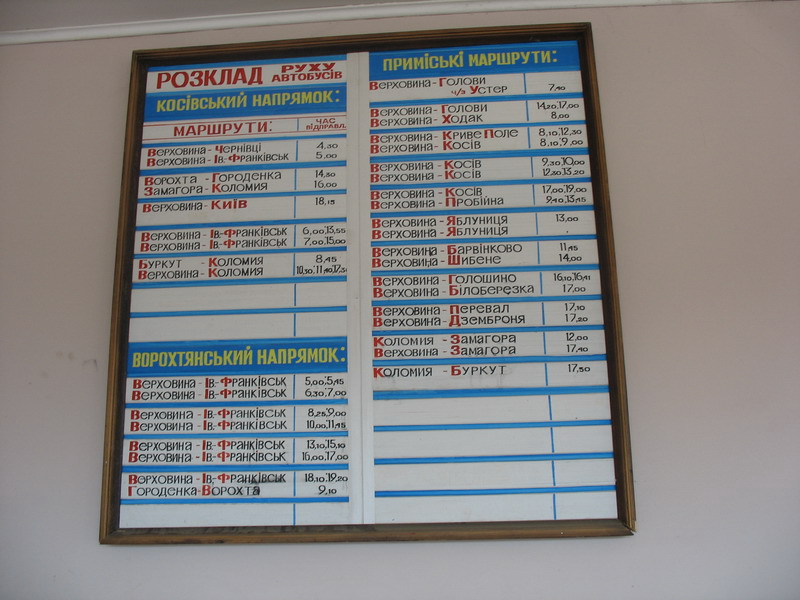 РОЗКЛАД РУХУ АВТОБУСІВ
КОСІВСЬКИЙ НАПРЯМОК:
МАРШРУТИ: ЧАС ВІДПРАВЛ.
Верховина - Чернівці 4,30
Верховина - Ів-Франківськ 5,00
Ворохта - Городенка 14,30
Замагора - Коломия 16,00
Верховина - Київ 18,15
Верховина - Ів-Франківськ 6,00;13,55
Верховина - Ів-Франківськ 7,00;15,00
Буркут - Коломия 8,45
Верховина - Коломия 10,30;11,40;17,30
ВОРОХТЯНСЬКИЙ НАПРЯМОК:
Верховина - Ів.-Франківськ 5,00;5,45
Верховина - Ів.-Франківськ 6,30;7,00
Верховина - Ів.-Франківськ 8,25;9,00
Верховина - Ів.-Франківськ 10,00;11,45
Верховина - Ів.-Франківськ 13,10;15,10
Верховина - Ів.-Франківськ 16,00;17,00
Верховина - Ів.-Франківськ 18,10;19,20
Городенка-Ворохта 9,10
ПРИМІСЬКІ МАРШРУТИ:
Верховина-Голови
ч/з Устер 7,40
Верховина - Голови 14,20;17,00
Верховина - Ходак 8,00
Верховина - Криве Поле 8,10;12,30
Верховина - Косів 8,10;9,00
Верховина - Косів 9,30;10,00
Верховина - Косів 12,30;13,20
Верховина - Косів 17,00;19,00
Верховина - Пробійна 9,40;13,45
Верховина - Яблуниця 13,00
Верховина - Яблуниця
Верховина - Барвінково 11,45
Верховина - Шибене 14,00
Верховина - Голошино 16,10;16,41
Верховина - Білоберезка 17,00
Верховина - Перевал 17,10
Верховина - Дземброня 17,20
Коломия - Замагора 12,00
Верховина - Замагора 17,40
Коломия - Буркут 17,50